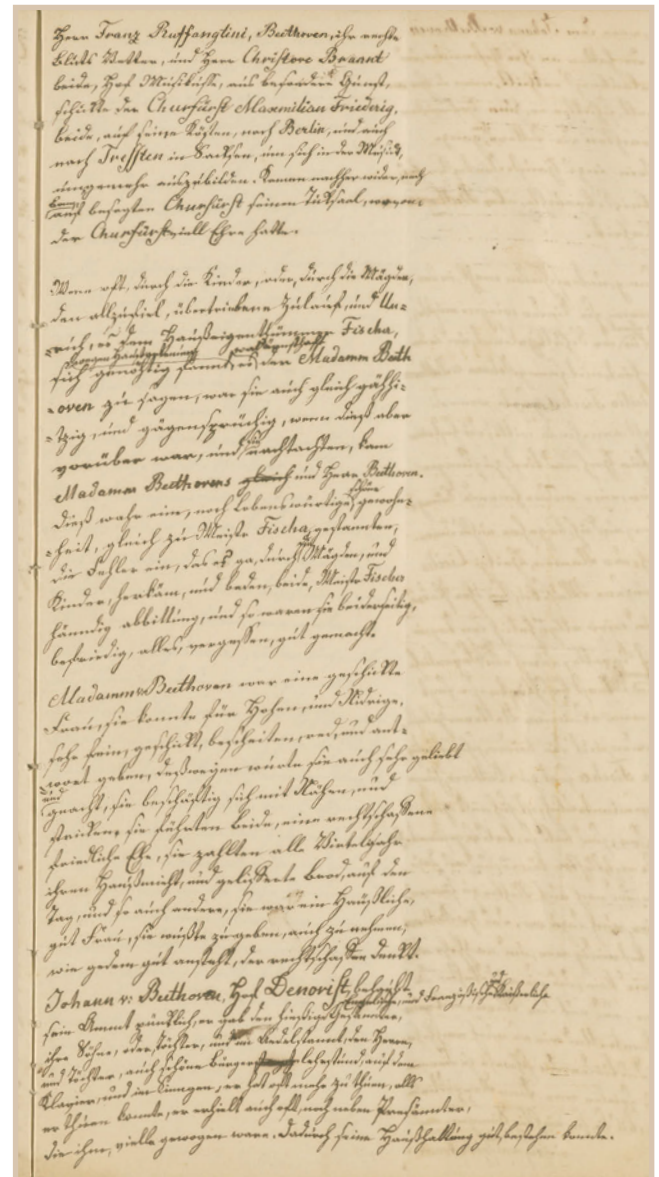 Herr Franz Ruffangtini, Beethoven, ihr rechte
bluts Vetter, und Herr Christove Braant
beide, Hof Musikusse, aus besondere Gunst,
schickte der Churfürst Maxmilian Friederig,
beide, auf seine Kösten, nach Berlin, und auch
nach Treßten in Sachsen, um sich in der Musick,
ungemehr auszubilden. Kamen nachher wider, nach
Bonn
auf besagten Churfürst seinen
der Churfürst viell Ehre hatte.
Wenn oft, durch die Kinder, oder, durch die Mägde,
den allzuviel, übertriebene Zulauf, und Un-
ruh, er dem Haußeigenthümmer Fischer,
sich genöthig fannt, es der Madamm Beeth
oven zu sagen, war sie auch gleich
-tzig, und gägensprüchig, wenn dieß aber
vorüber war, und nachdachten, kam
Madamm Beethovens gleich und Herr Beethoven.
dieß wahr eine, noch lobenswürtige, schöne gewohn-
-heit, gleich zu Meister Fischer, gestannten,
die Fehler ein, das es ja, durch Mägden, und
Kinder, herkäm, und beden, beide, Meister Fischer
händig abbittung, und so waren sie beiderseitig,
befriedig, alles, vergessen, gut gemacht.
Madamm Beethoven war eine geschickte
Frau, sie konnte für Hohen, und Nidrige,
sehr fein, geschickt, bescheiten, red, und ant-
-wort geben, deßwegen wurte sie auch sehr geliebt
und
geacht, sie beschäftig sich mit Nähen, und
stricken, sie führten beide, eine rechtschaffene
friedliche Ehe, sie zahlten alle Virteljahr
ihren Haußmieht, und gelifferte brod, auf den
Tag, und so auch andere, sie war ein Häußliche,
gut Frau, sie wußte zu geben, auch zu nehmen,
wie jedem gut ansteht, der rechtschaffen denkt.
Johann v: Beethoven, Hof Denorist, befolgte
sein Ammt pünktlich, er gab den hießige Gesandter,
Engelische, und Französische, und Keiserliche
ihre Söhne, oder, töchter, und im Aedelstannt, den Herren,
und töchter, auch schöne bürgers lehrstund, auf dem
Klavier, und im Singen, er hat oft mehr zu thuen, alls
er thuen konnte, er erhielt auch oft, noch neben Presännter,
die ihm, vielle gewogen ware. Dadurch seine Haußhaltung gut, bestehen konnte.